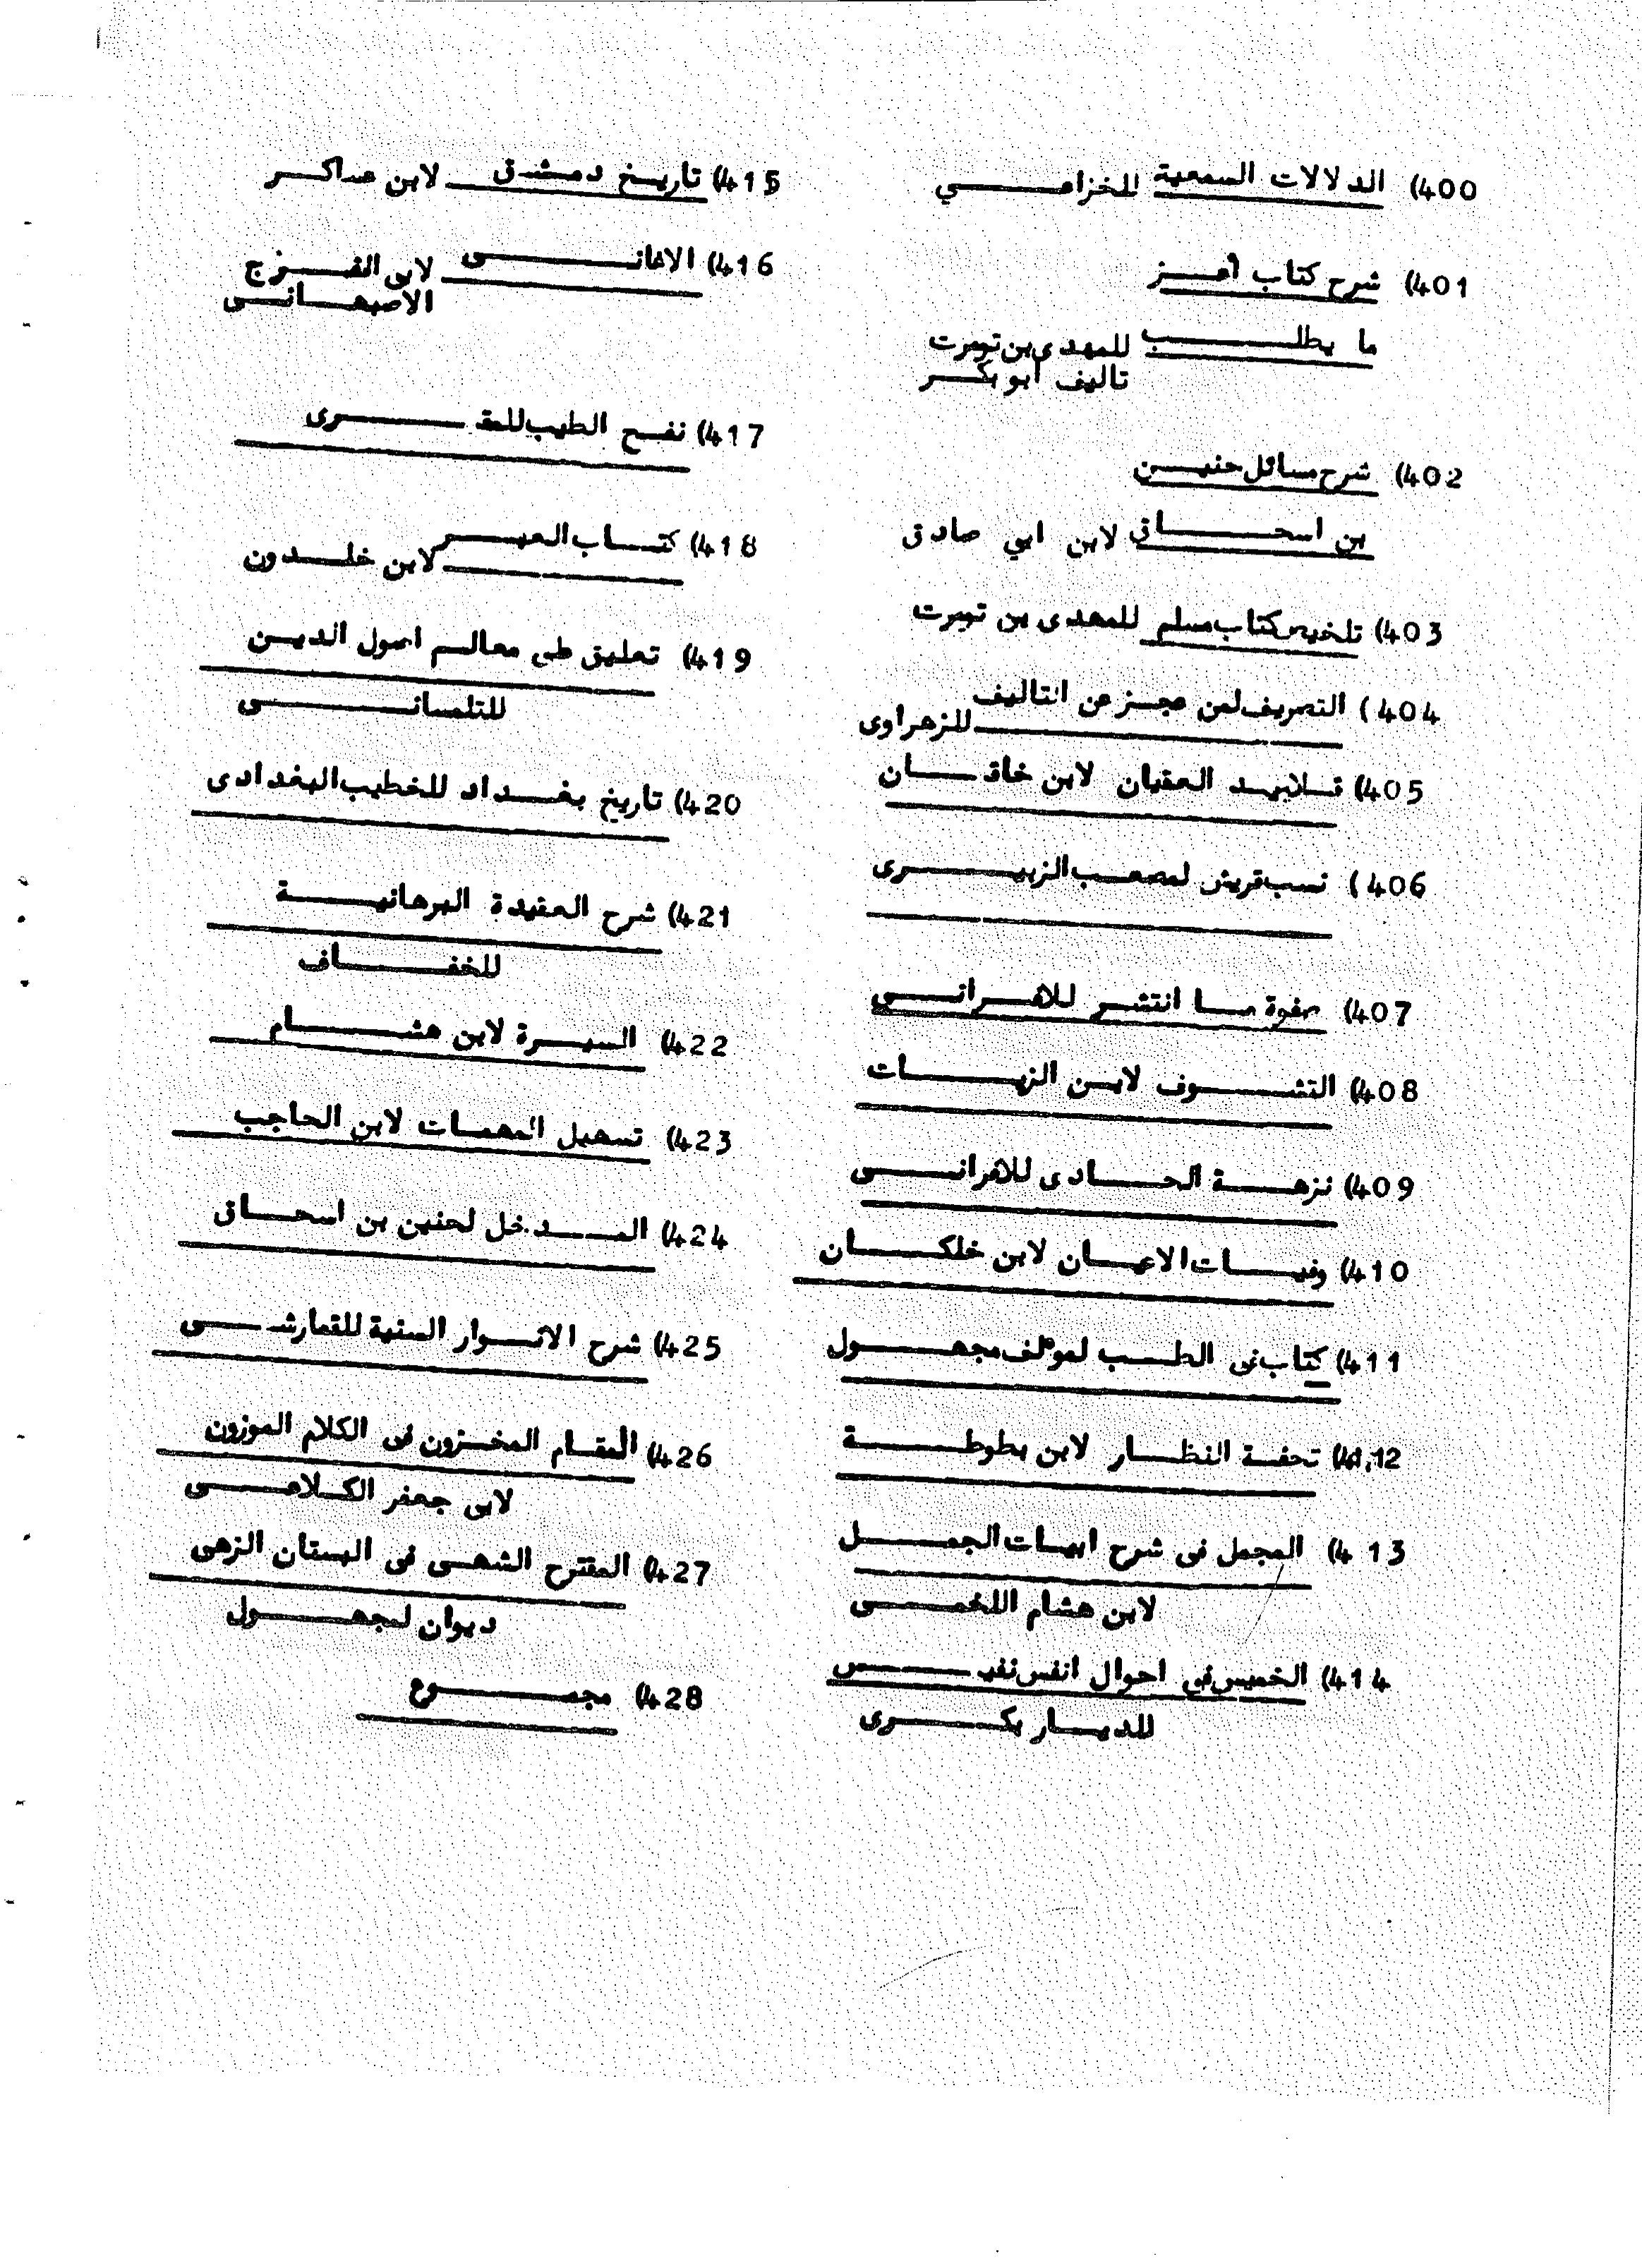 400) الدلالات السمعية للخزاعي
401) شرح كتاب أعز
ما يطلب للمهدى بن تومرت
تاليف أبو بكر
402) شرح مسائل حنين
بن اسحاق لابن ابي صادق
403) تلخيص كتاب مسلم للمهدى بن تومرت
404) التصريف لمن عجز عن التاليف
للزهراوى
405) قلايد العقيان لابن خاقان
406) نسب قريش لمصعب الزبيرى
407) صفوة ما انتشر للافرانى
408) التشوف لابن الزيات
409) نزهة الحادى للافرانى
410) وفيات الاعيان لابن خلكان
411) كتاب فى الطب لموءلف مجهول
412) تحفة النظار لابن بطوطة
413) المجمل فى شرح ابيات الجمل
لابن هشام اللخمى
414) الخميس فى احوال انفس نفيس
للديار بكرى
415) تاريخ دمشق لابن عساكر
416) الاغانى لابى الفرج
الاصبهانى
417) نفح الطيب للمقرى
418) كتاب العبر لابن خلدون
419) تعليق على معالم اصول الدين
للتلمسانى
420) تاريخ بغداد للخطيب البغدادى
421) شرح العقيدة البرهانية
للخفاف
422) السيرة لابن هشام
423) تسهيل المهمات لابن الحاجب
424) المدخل لحنين بن اسحاق
425) شرح الانوار السنية للقمارشى
426) المقام المخزون فى الكلام الموزون
لابى جعفر الكلاعى
427) المقترح الشهى فى البستان الزهى
ديوان لمجهول
428) مجموع